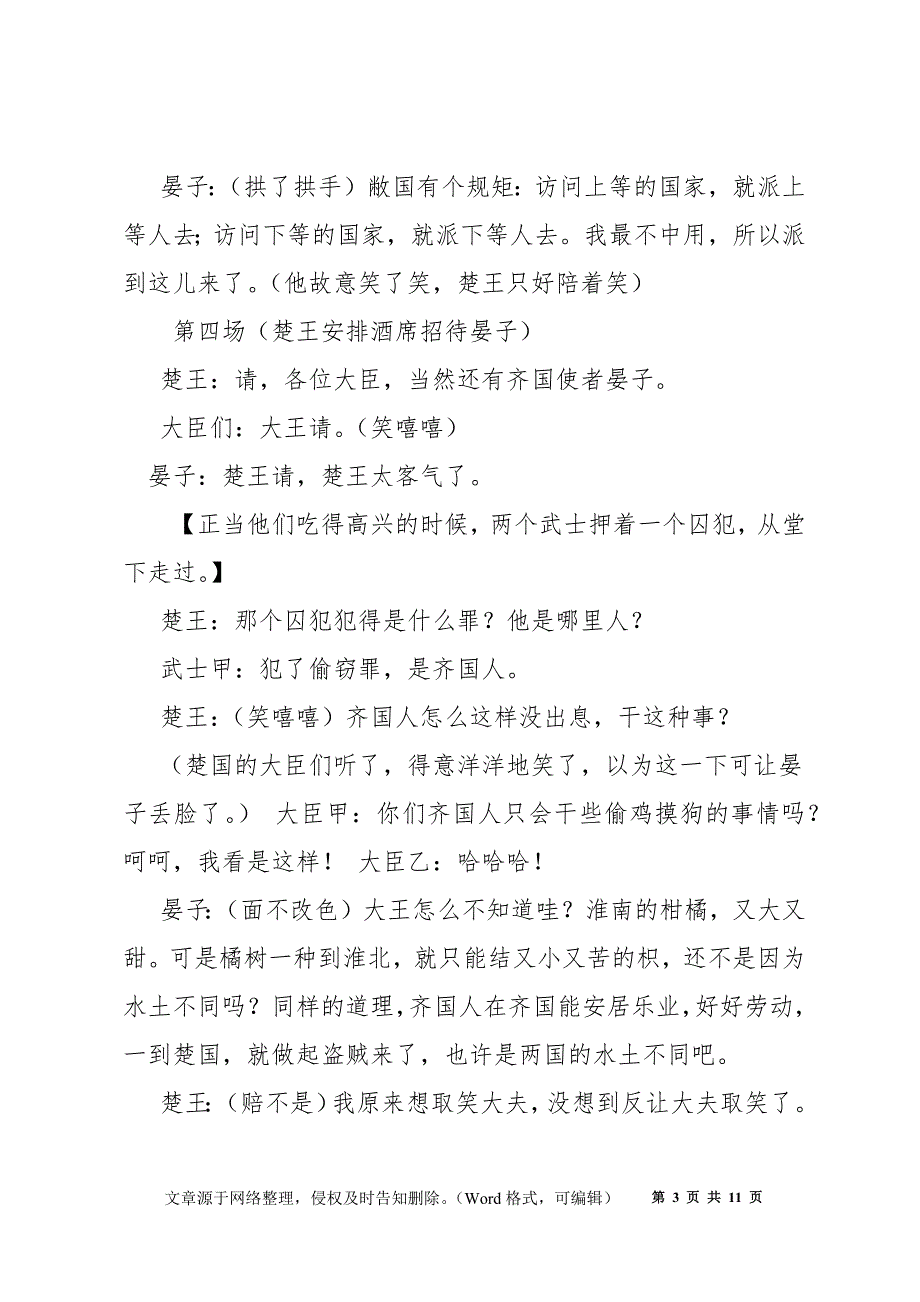 晏子:(拱了拱手)敝国有个规矩:访问上等的国家，就派上
等人去;访问下等的国家，就派下等人去。我最不中用，所以派
到这儿来了。(他故意笑了笑，楚王只好陪着笑)
第四场(楚王安排酒席招待晏子)
楚王:请，各位大臣，当然还有齐国使者晏子。
大臣们:大王请。(笑嘻嘻)
晏子:楚王请，楚王太客气了。
【正当他们吃得高兴的时候，两个武士押着一个囚犯，从堂
下走过。】
楚王:那个囚犯犯得是什么罪?他是哪里人?
武士甲:犯了偷窃罪，是齐国人。
楚王:(笑嘻嘻)齐国人怎么这样没出息，干这种事?
(楚国的大臣们听了，得意洋洋地笑了，以为这一下可让晏
子丢脸了。) 大臣甲:你们齐国人只会干些偷鸡摸狗的事情吗?
呵呵，我看是这样! 大臣乙:哈哈哈!
晏子:(面不改色)大王怎么不知道哇?淮南的柑橘，又大又
甜。可是橘树一种到淮北，就只能结又小又苦的枳，还不是因为
水土不同吗?同样的道理，齐国人在齐国能安居乐业，好好劳动，
一到楚国，就做起盗贼来了，也许是两国的水土不同吧。
楚王:(赔不是)我原来想取笑大夫，没想到反让大夫取笑了。
文章源于网络整理，侵权及时告知删除。(Word 格式，可编辑) 第 3 页 共 11 页